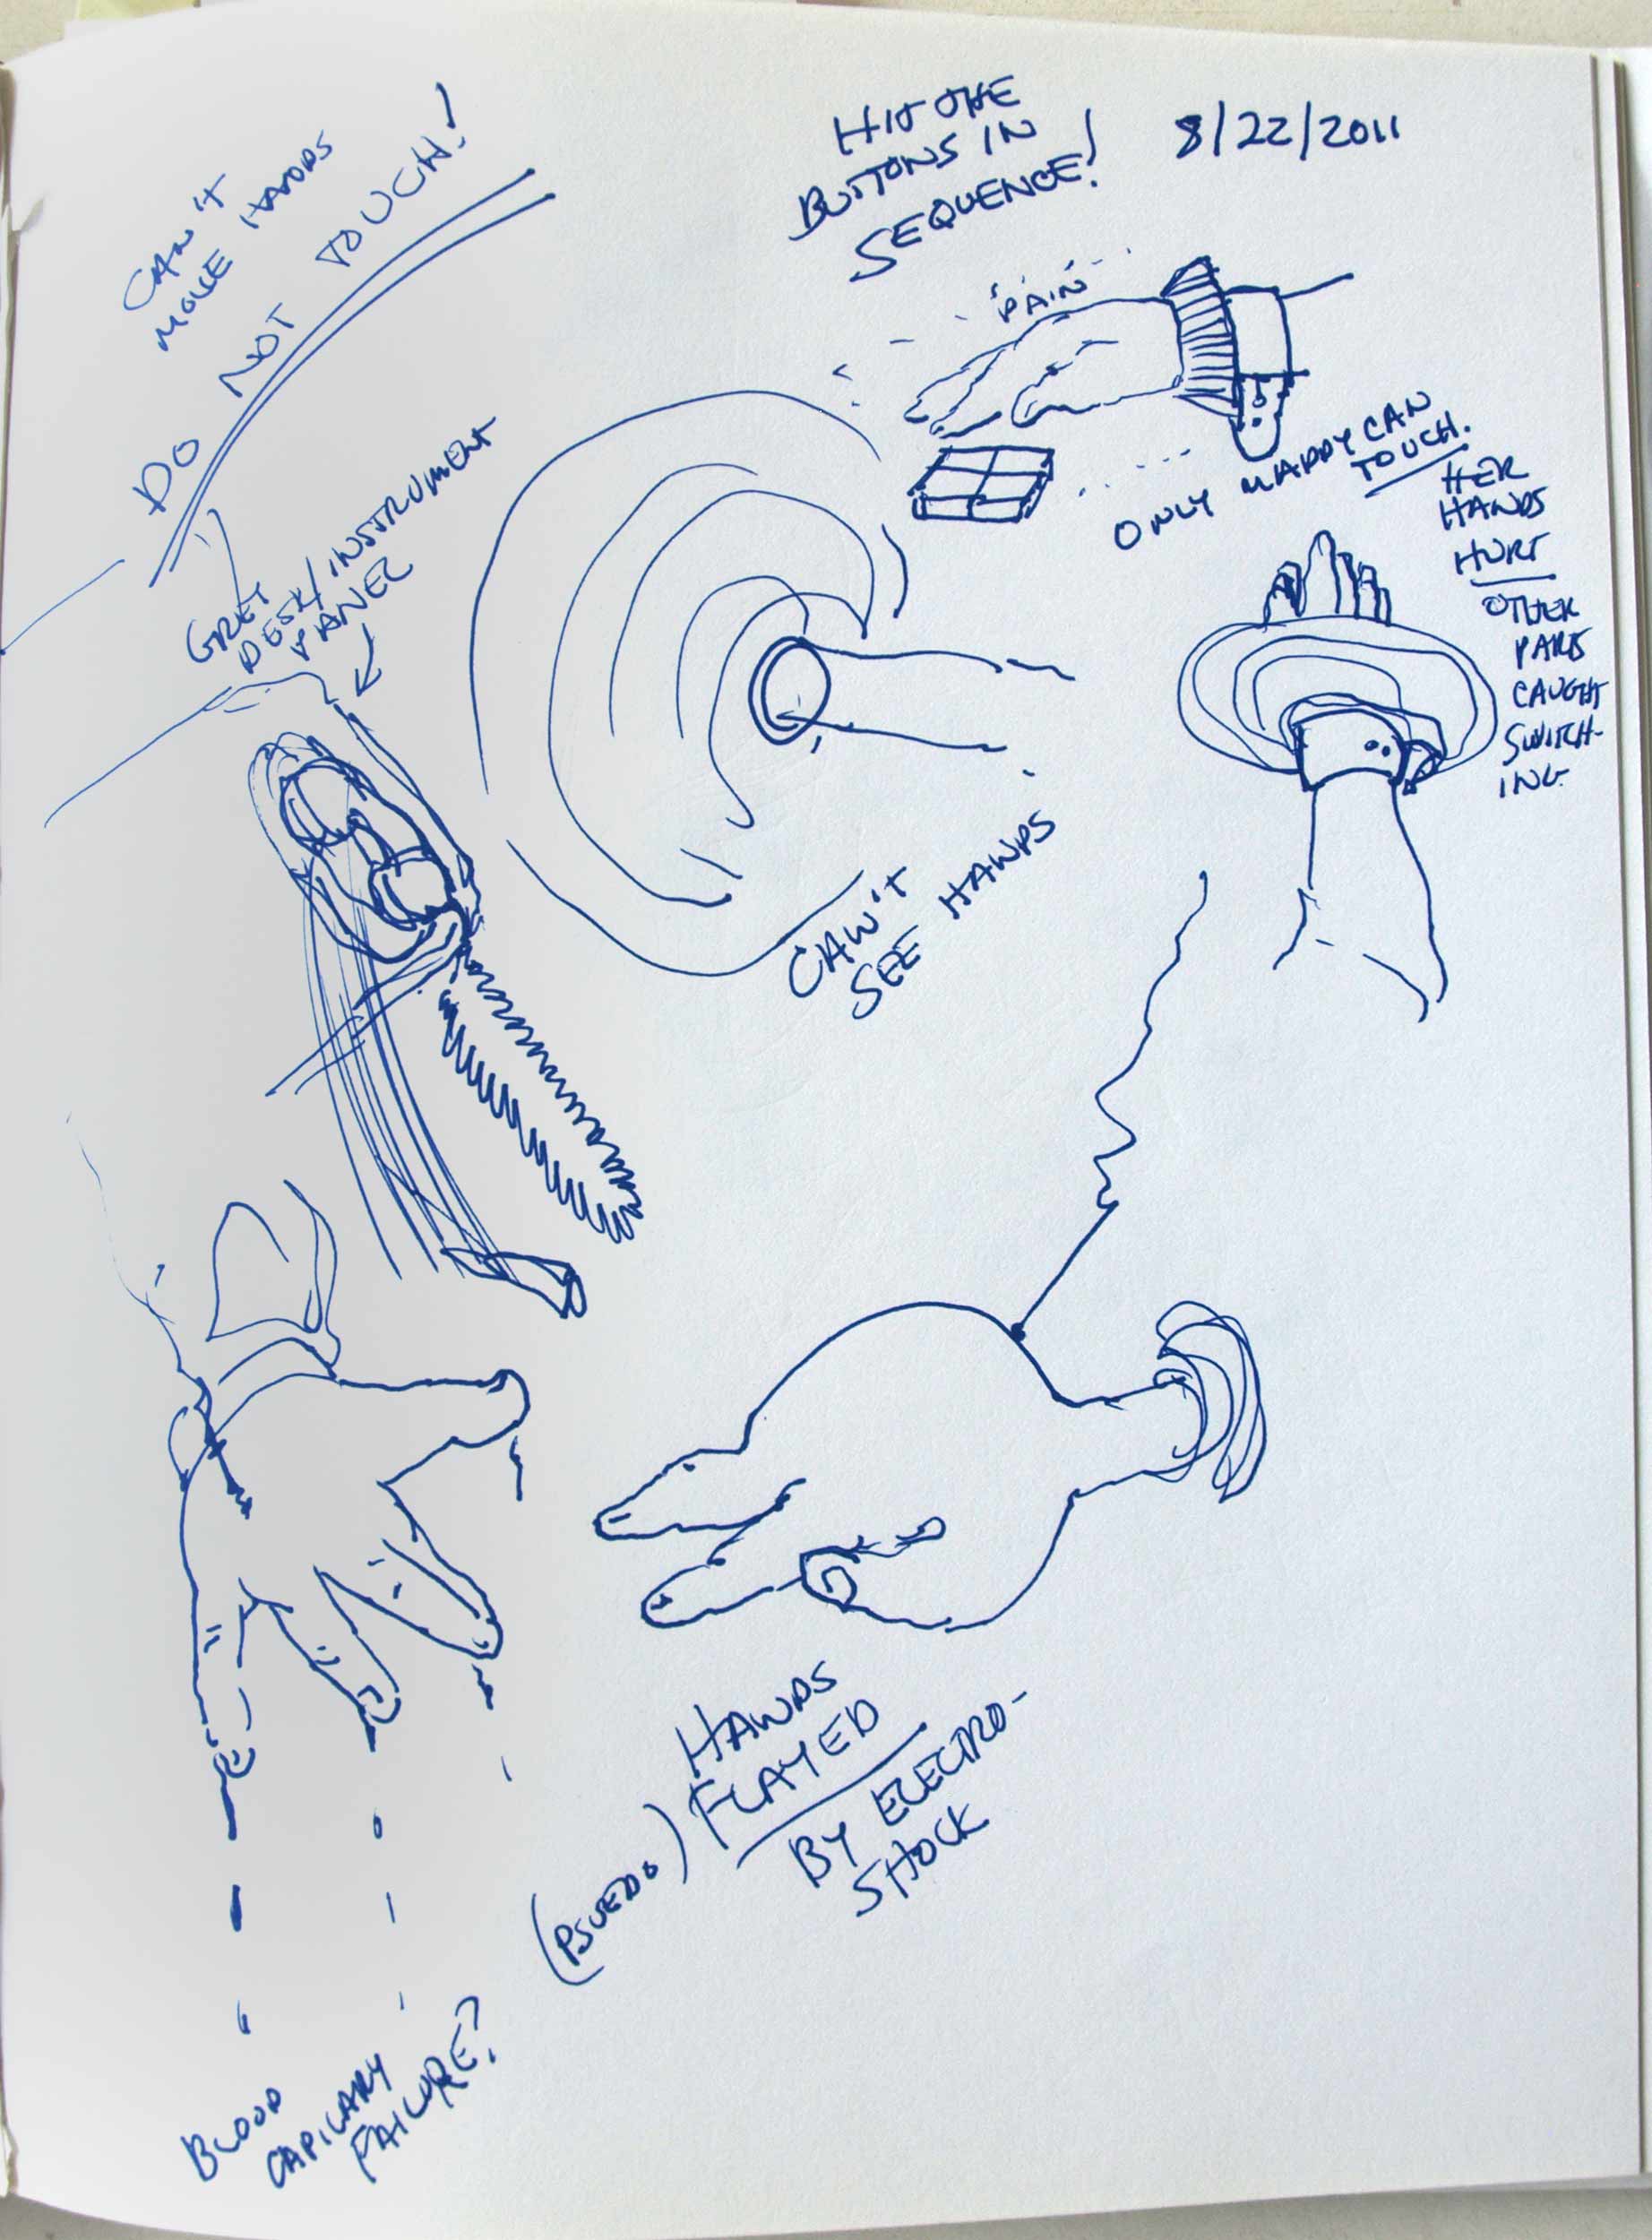 CAN'T
MOVE HANDS
DO NOT TOUCH!
HIT THE
BUTTONS IN
SEQUENCE!
8/22/2011
"PAIN"
GREY
DESK/INSTRUMENT
PANEL
ONLY MADDY CAN
TOUCH.
HER
HANDS
HURT
OTHER
PARTS
CAUGHT
SWITCH-
ING
CAN'T
SEE HANDS
HANDS
(PSUEDO) FLAYED
BY ELECTRO-
SHOCK
BLOOD
CAPILARY
FAILURE?